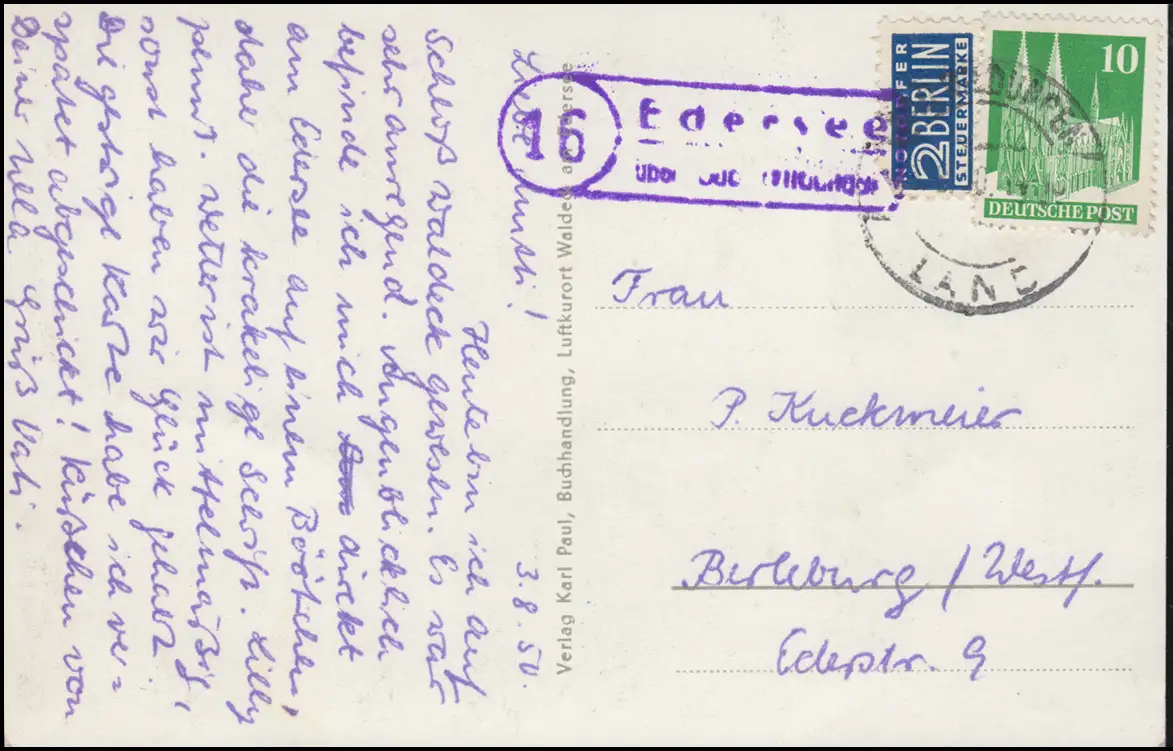 3.8.50.
Liebe Mutti!
Heute bin ich auf
Schloß Waldeck gewesen. Es war
sehr anregend. Augenblicklich
befinde ich mich direkt
am Edersee auf einem Bötchen,
daher die krakelige Schrift. Lilly
pennt. Wetter ist mittelmäßig,
sonst haben wir Glück gehabt.
Die gestrige Karte habe ich ver-
spätet abgeschickt! Küßchen von
Deiner Ulla. Gruß Vati.
Verlag Karl Paul, Buchhandlung, Luftkurort Waldeck am Edersee
16
Edersee
über Bad
NOTOPFER
2 BERLIN
STEUERMARKE
10
DEUTSCHE POST
LAND
Frau
P. Kuckmeier
Berleburg / Westf.
Ederstr. 9